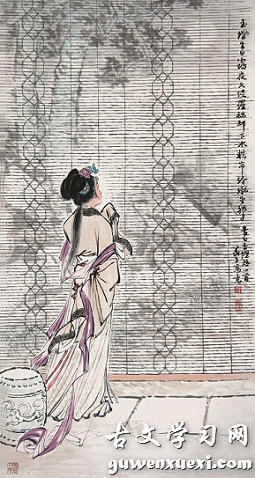 玉階生白露夜久侵羅襪却下水精帘玲瓏望秋月
李白玉階怨
古文学习网
guwenxuexi.com